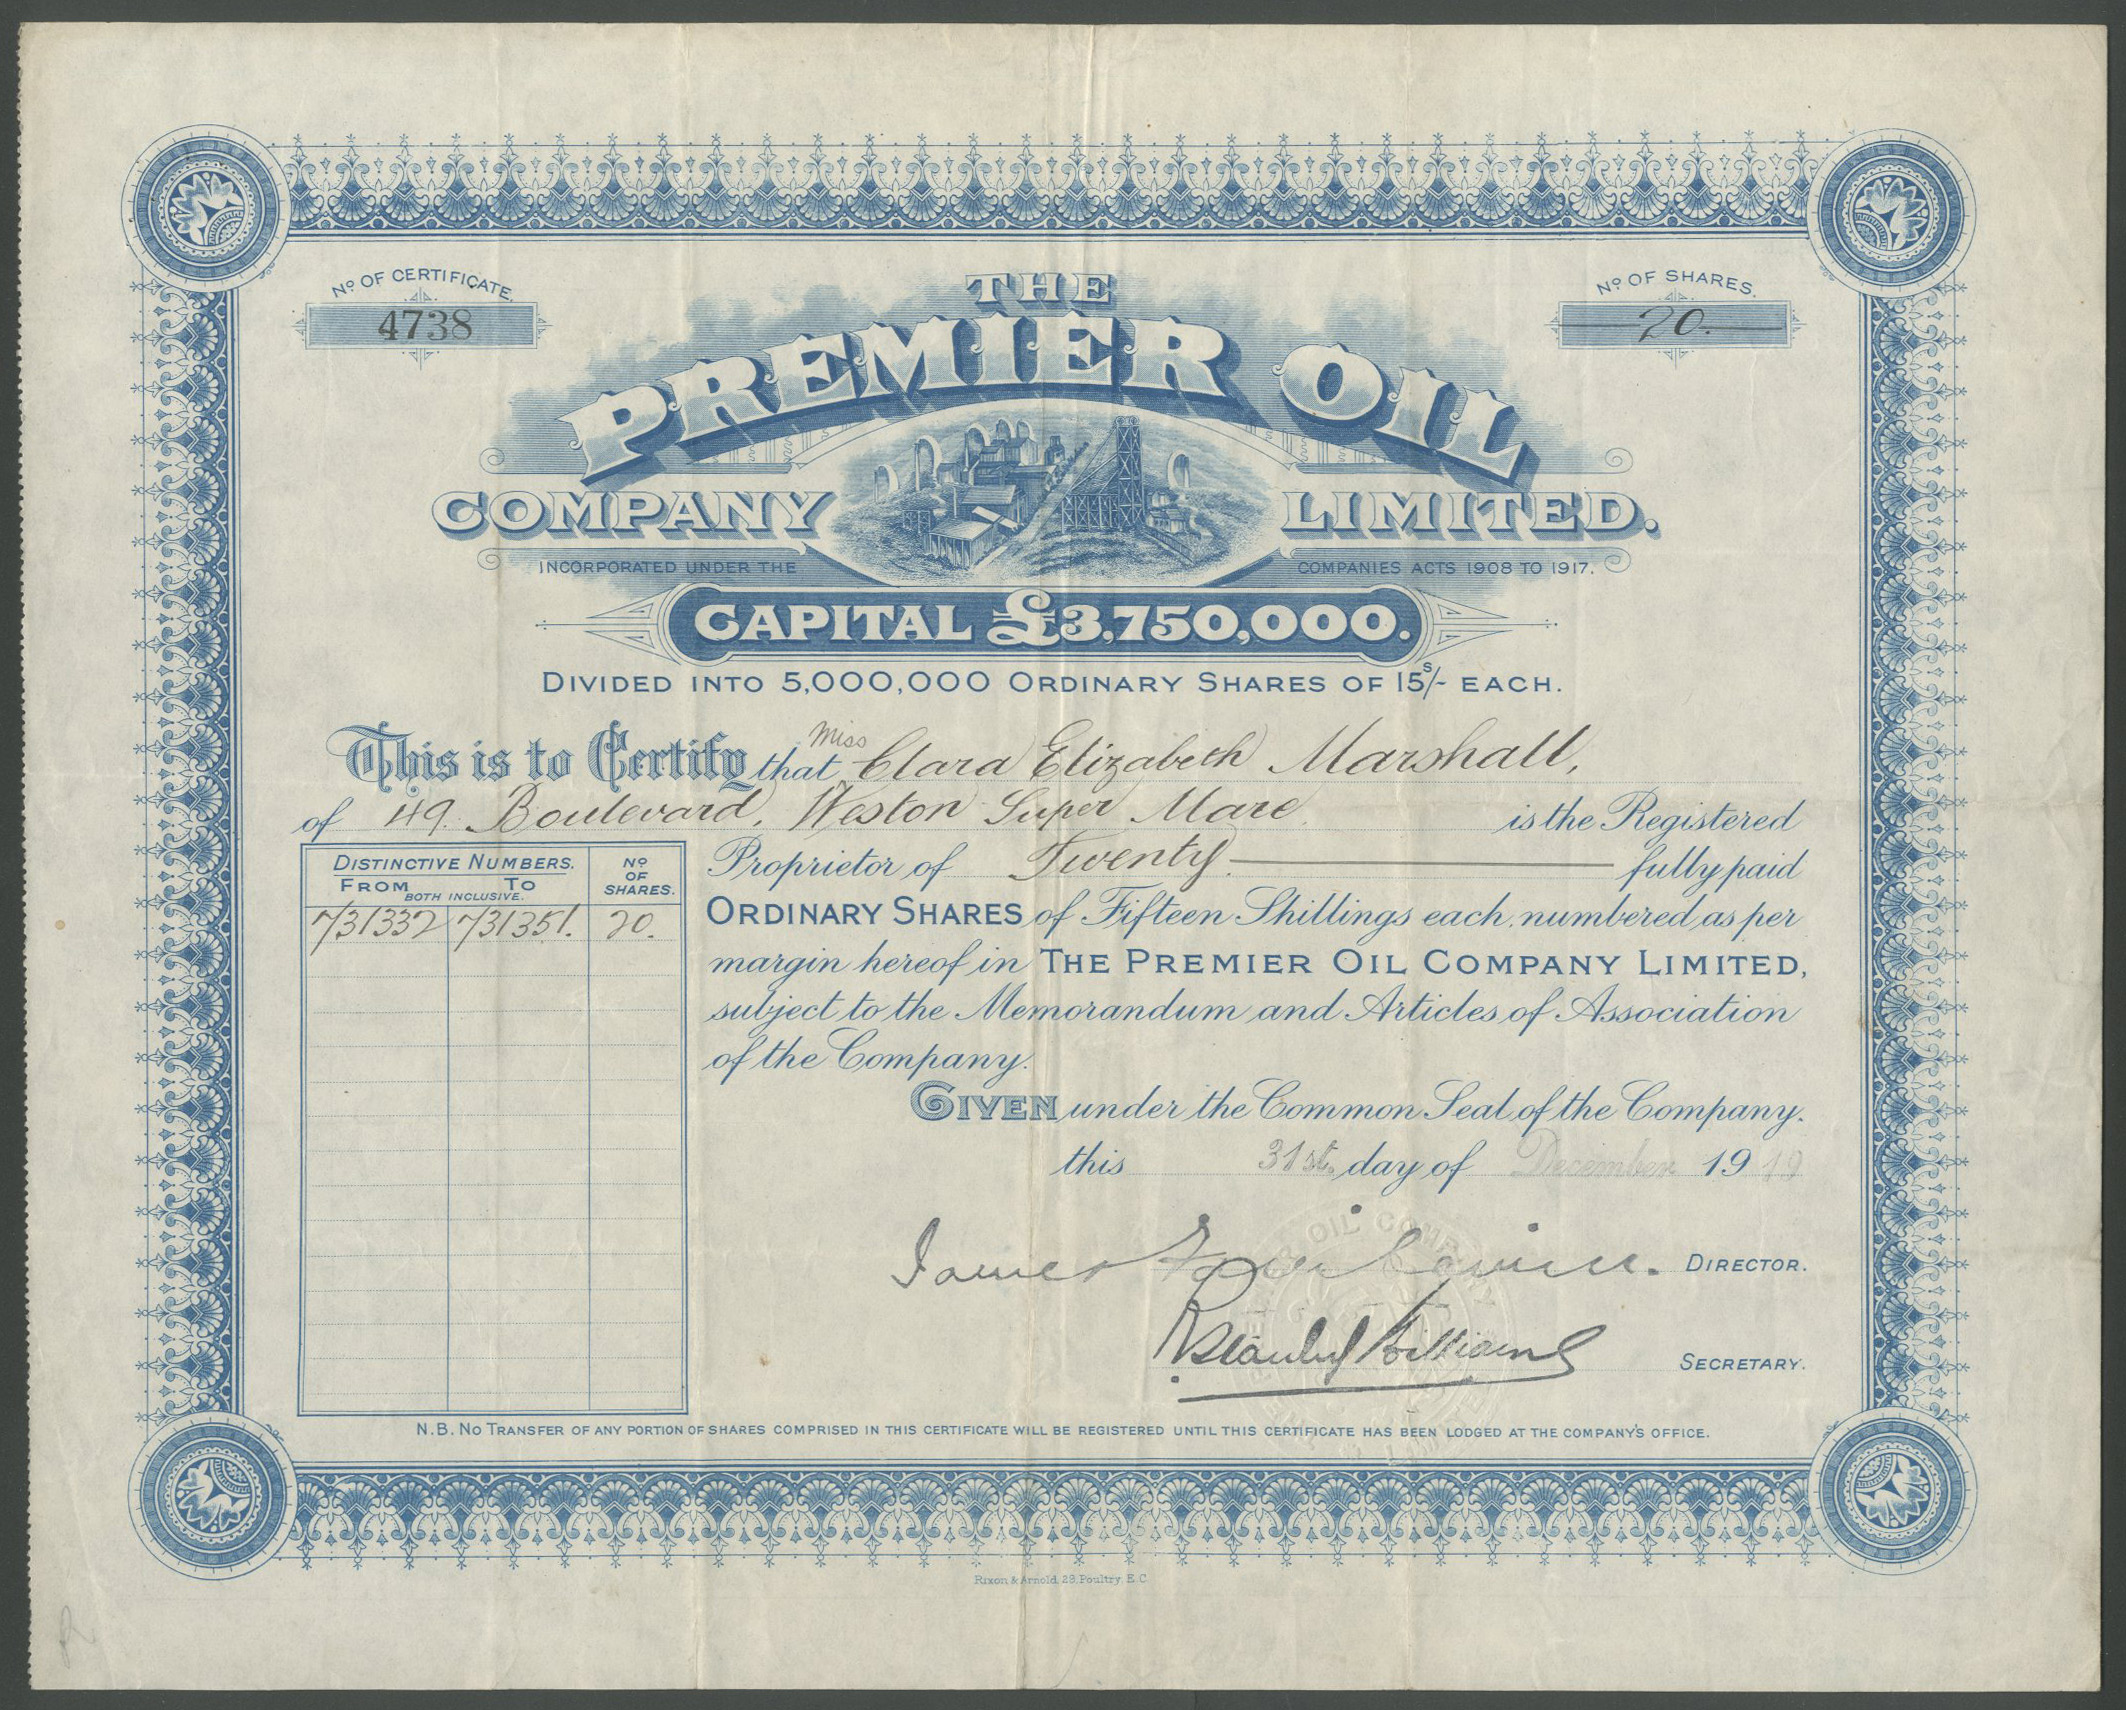 No OF CERTIFICATE.
4738
No OF SHARES.
20.
THE
PREMIER OIL
COMPANY LIMITED.
INCORPORATED UNDER THE COMPANIES ACTS 1908 TO 1917.
CAPITAL £3,750,000.
DIVIDED INTO 5,000,000 ORDINARY SHARES OF 15s/- EACH.
This is to Certify that Miss Clara Elizabeth Marshall,
of 49. Boulevard, Weston Super Mare. is the Registered
Proprietor of Twenty fully paid
ORDINARY SHARES of Fifteen Shillings each, numbered as per
margin hereof in THE PREMIER OIL COMPANY LIMITED,
subject to the Memorandum and Articles of Association
of the Company.
DISTINCTIVE NUMBERS. No OF SHARES.
FROM TO
BOTH INCLUSIVE.
731332 731351. 20.
GIVEN under the Common Seal of the Company.
this 31st. day of December 1919
James DIRECTOR.
Williams SECRETARY.
OIL COMPANY
N.B. NO TRANSFER OF ANY PORTION OF SHARES COMPRISED IN THIS CERTIFICATE WILL BE REGISTERED UNTIL THIS CERTIFICATE HAS BEEN LODGED AT THE COMPANY'S OFFICE.
Rixon & Arnold, 29, Poultry, E.C.